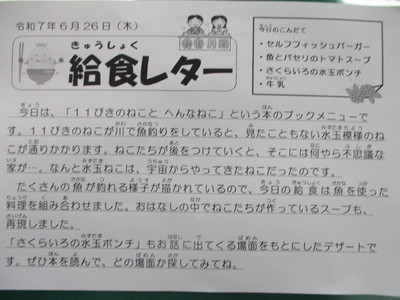 令和7年6月26日(木)
きゅうしょく
給食レター
今日のこんだて
・セルフフィッシュバーガー
・魚とパセリのトマトスープ
・さくらいろの水玉ポンチ
・牛乳
今日は、「11ぴきのねこと へんなねこ」という本のブックメニューで
す。11ぴきのねこが川で魚釣りをしていると、見たこともない水玉模様のね
こが通りかかります。ねこたちが後をつけていくと、そこには何やら不思議な
家が…。なんと水玉ねこは、宇宙からやってきたねこだったのです。
たくさんの魚が釣れる様子が描かれているので、今日の給食は魚を使った
料理を組み合わせました。おはなしの中でねこたちが作っているスープも、
再現しました。
「さくらいろの水玉ポンチ」もお話に出てくる場面をもとにしたデザートで
す。ぜひ本を読んで、どの場面か探してみてね。